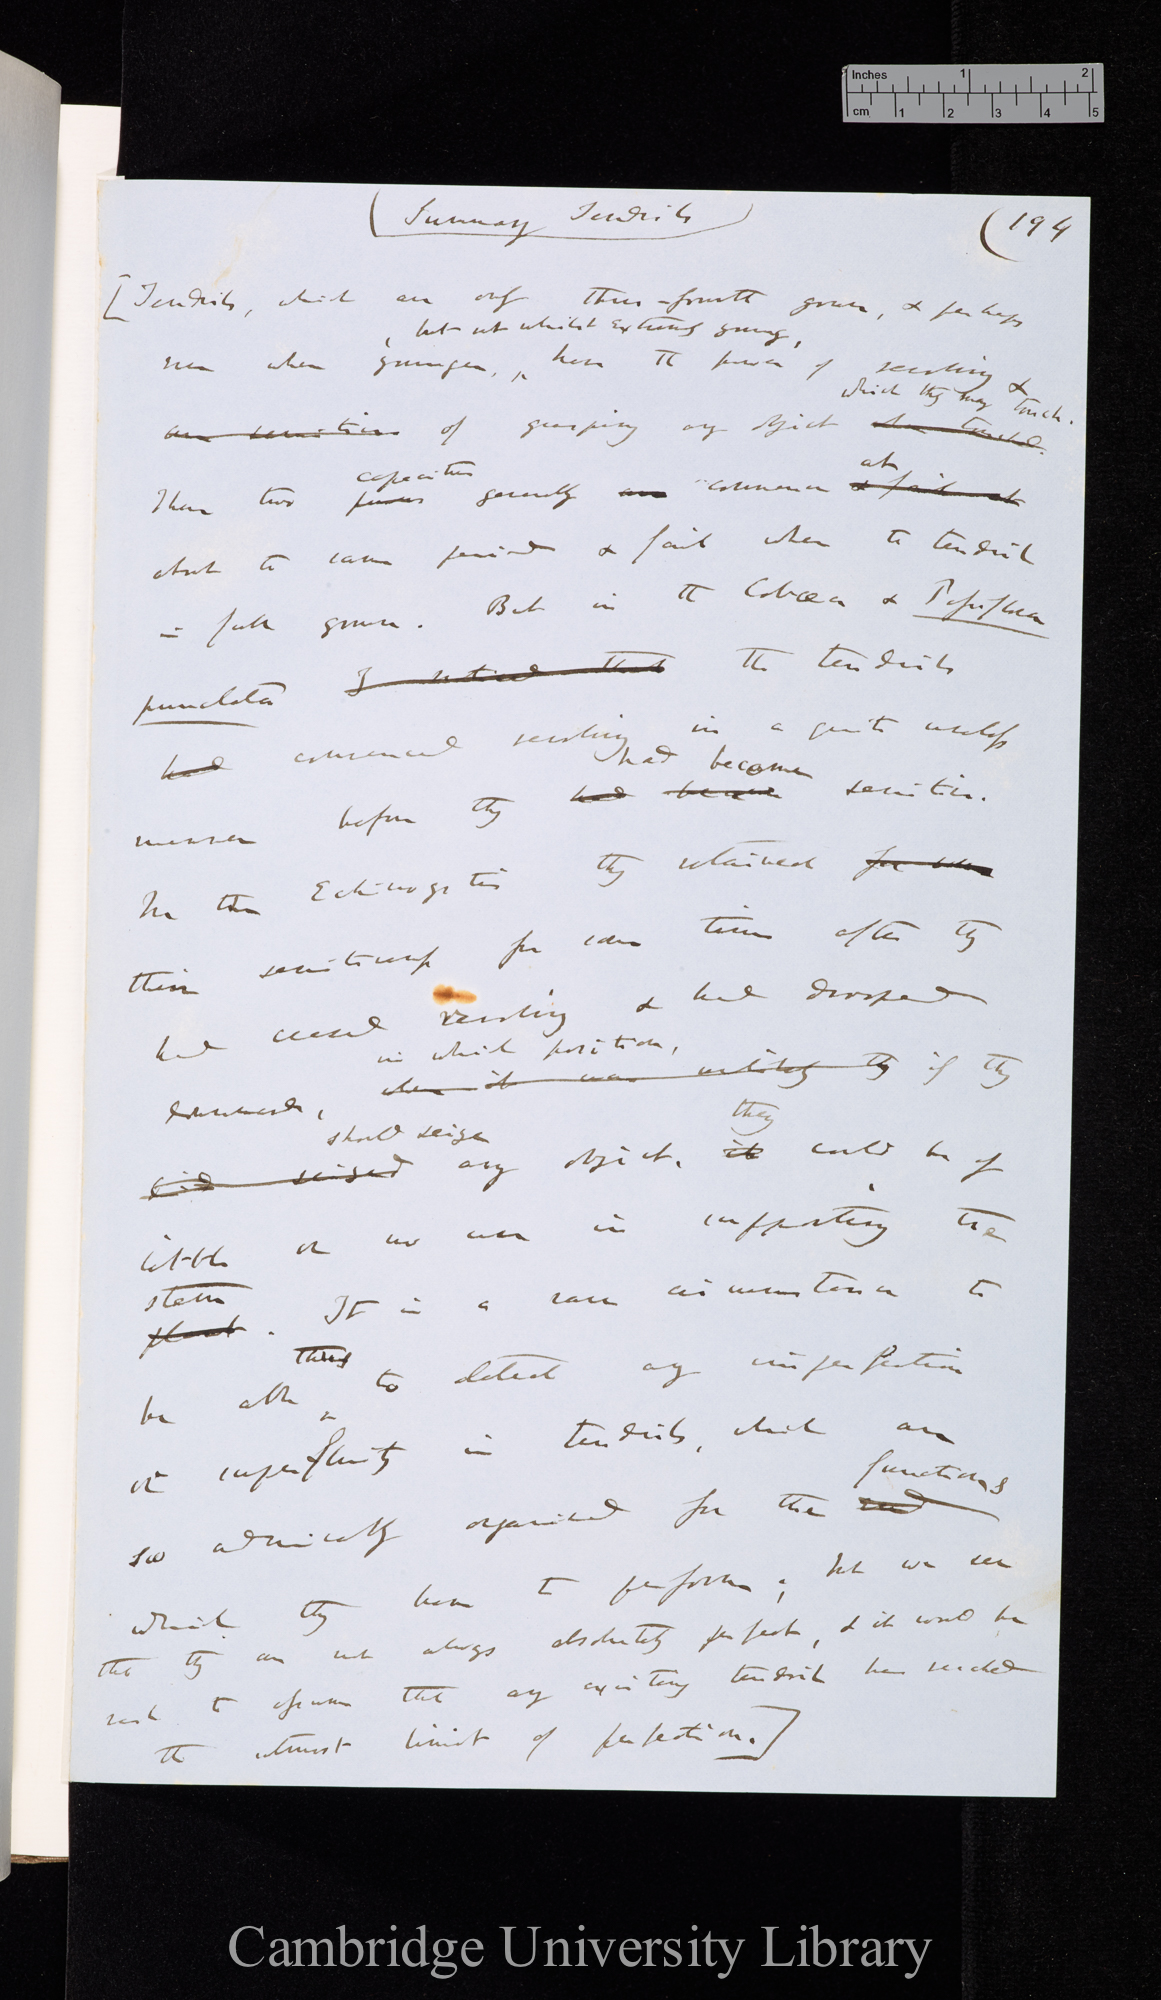 Inches 1 2
cm 1 2 3 4 5
(Summary Tendrils)
(194
[Tendrils, which are only three-fourth grown, & perhaps
, but not whilst extremely young,
even when younger, have the power of revolving &
which they may touch.
are sensitive of grasping any object when touched.
capacities
at
These two powers generally are commence & fail at
about the same period & fail when the tendril
is full grown. But in the Cobæa & Passiflora
punctata I noticed that the tendrils
had commenced revolving in a quite useless
had become
manner before they had become sensitive.
In the Echinocystis they retained for some
their sensitiveness for some time after they
had ceased revolving & had drooped
in which position,
downwards, when it was utterly they if they
should seize
they
did seized any object, it could be of
little or no use in supporting the
stem
plant. It is a rare circumstance to
thus
be able to detect any imperfection
or superfluity in tendrils, which are
functions
so admirably organised for the end
which they have to perform; but we see
that they are not always absolutely perfect, & it would be
rash to assume that any existing tendril has reached
the utmost limit of perfection.]
Cambridge University Library